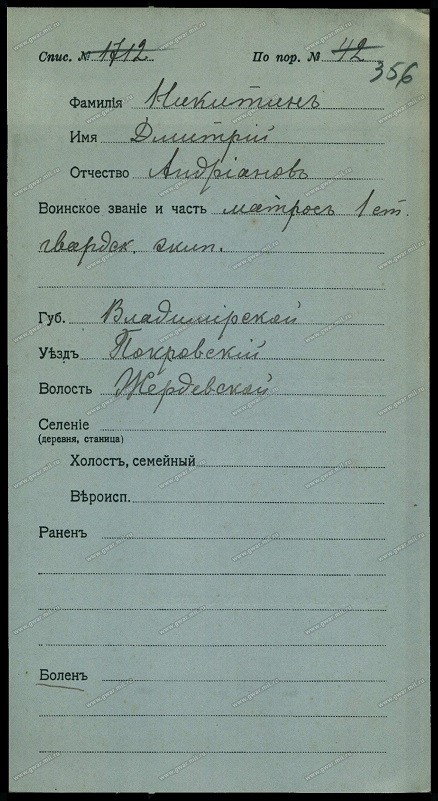 Спис. № 1712 По пор. № 42
356
Фамилія Никитинъ
Имя Дмитрій
Отчество Андріановъ
Воинское званіе и часть матросъ 1 ст.
гвардск. экип.
Губ. Владимірской
Уѣздъ Покровскій
Волость Жердевской
Селеніе
(деревня, станица)
Холостъ, семейный
Вѣроисп.
Раненъ
Боленъ